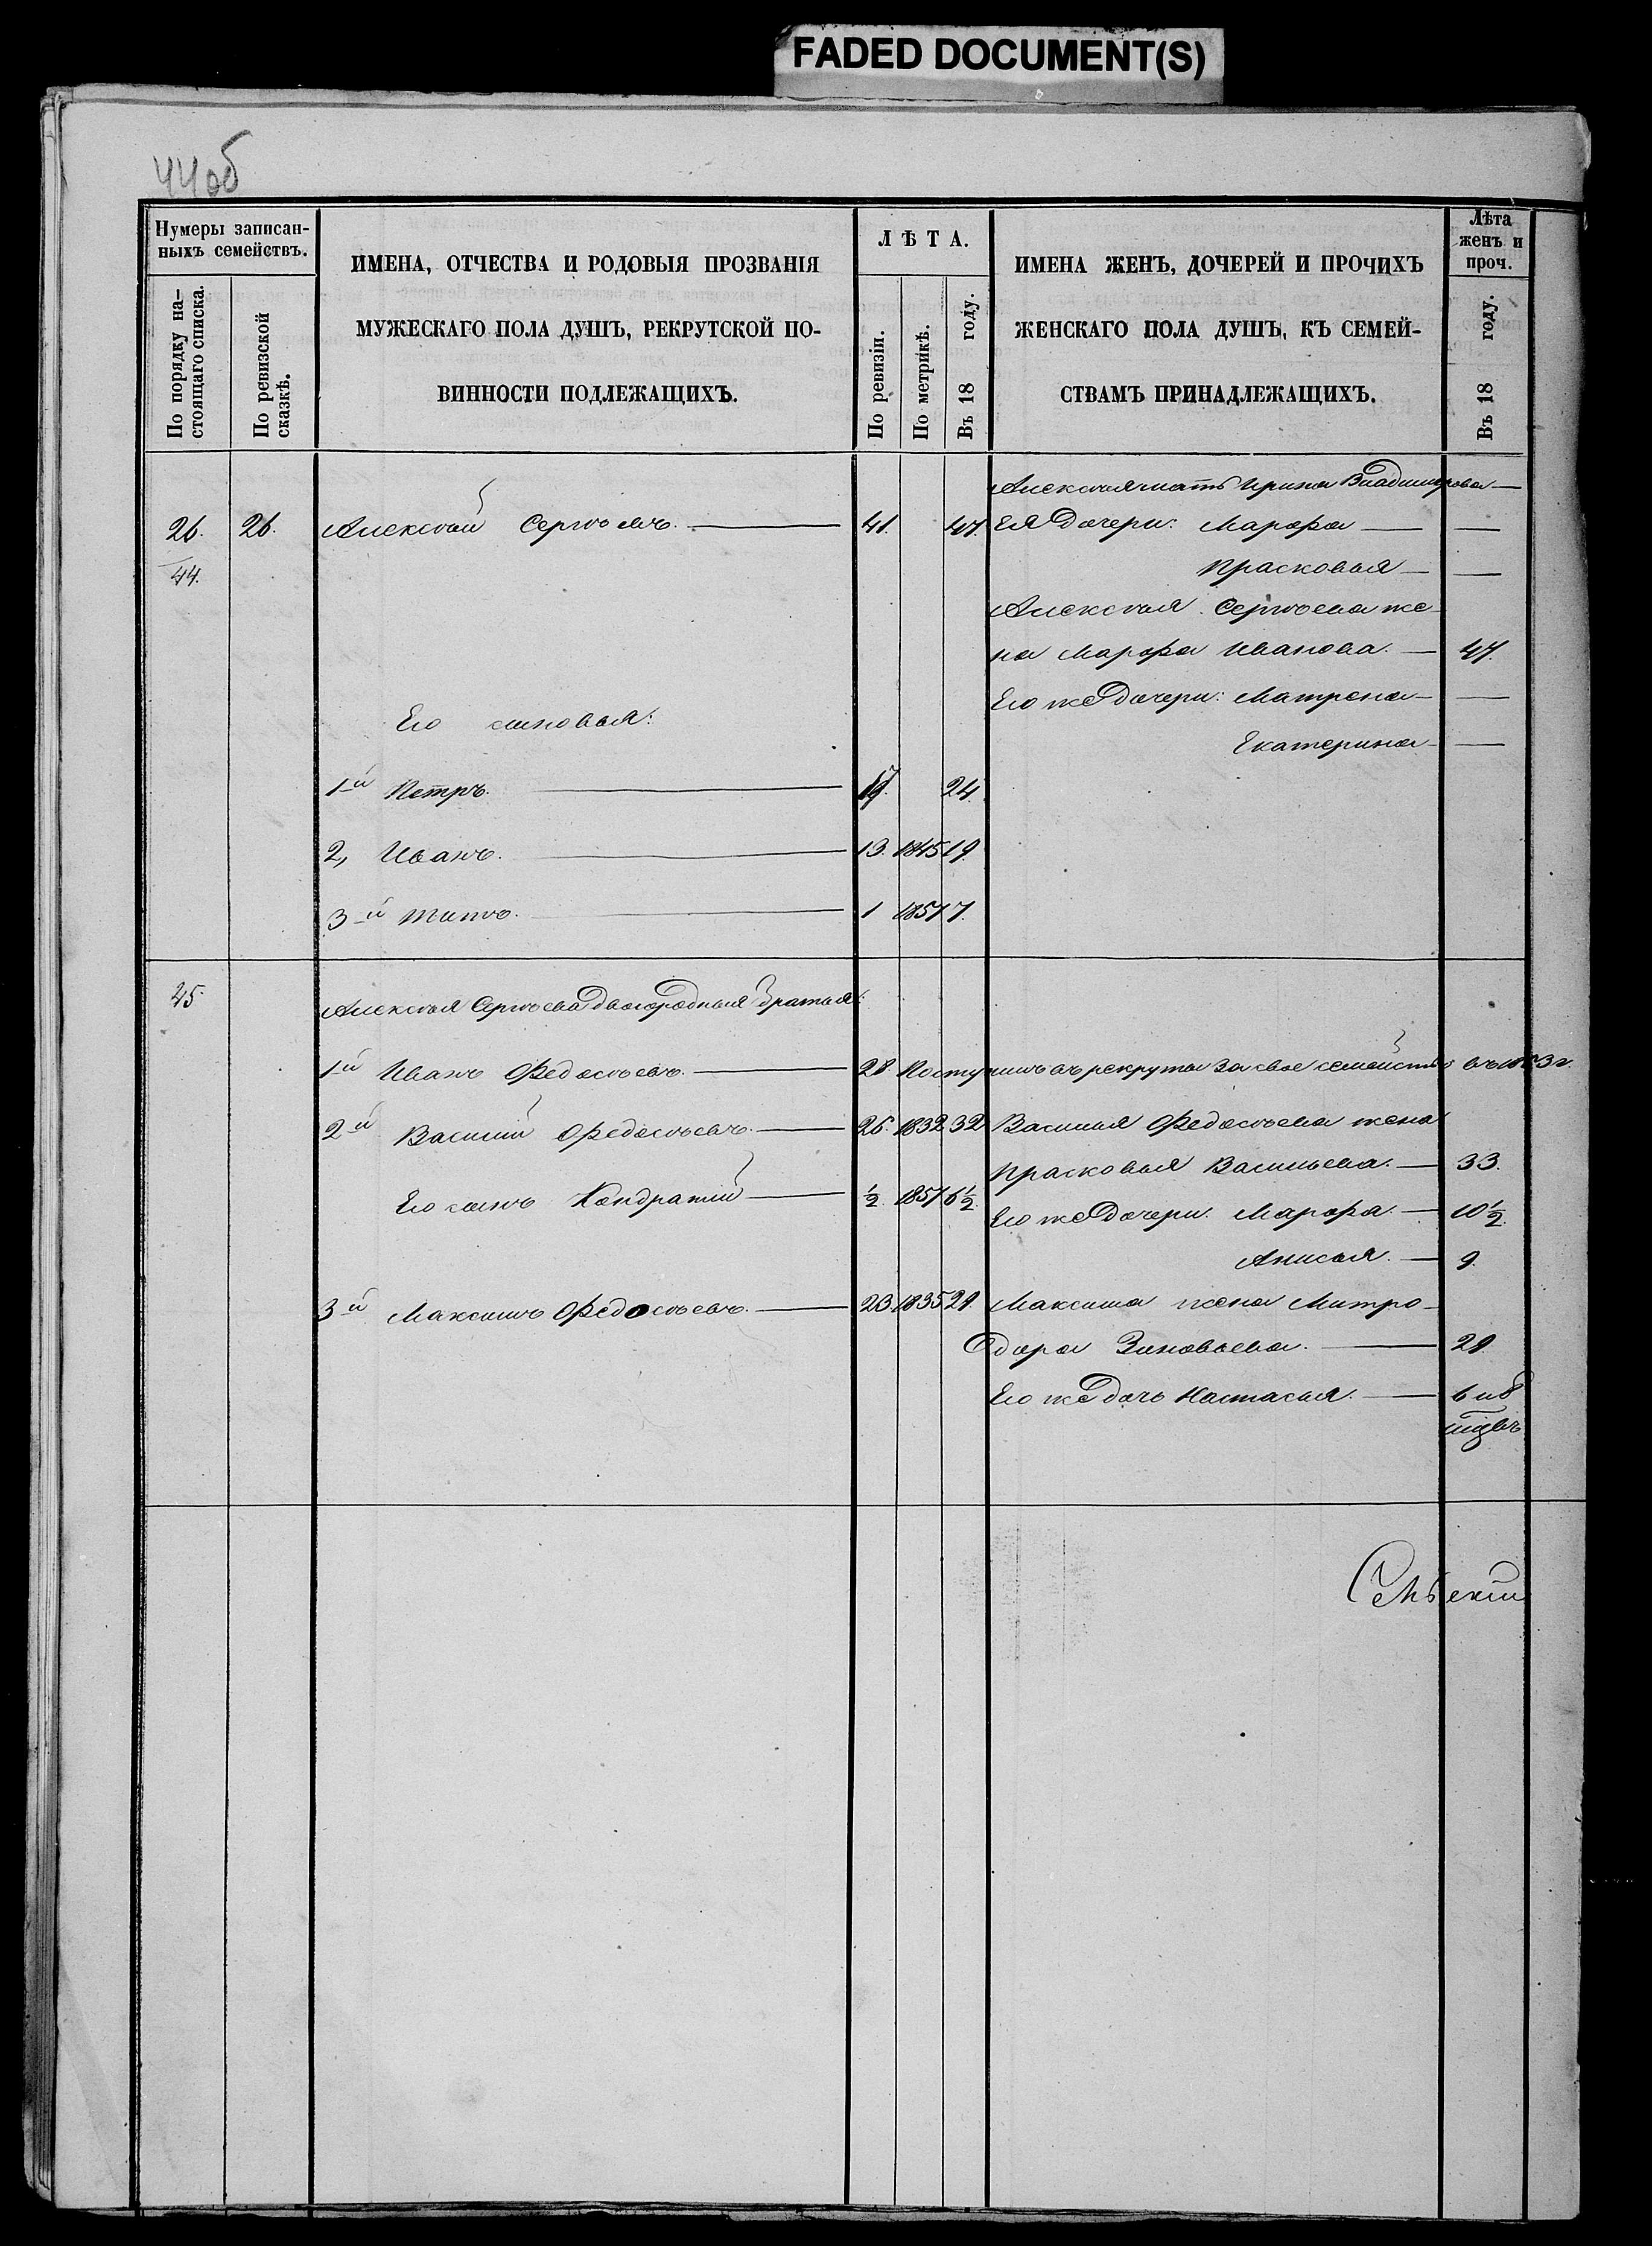 FADED DOCUMENT(S)
44об
Нумеры записан-
ныхъ семействъ.
По порядку на-
стоящаго списка.
По ревизской
сказкѣ.
ИМЕНА, ОТЧЕСТВА И РОДОВЫЯ ПРОЗВАНІЯ
МУЖЕСКАГО ПОЛА ДУШЪ, РЕКРУТСКОЙ ПО-
ВИННОСТИ ПОДЛЕЖАЩИХЪ.
ЛѢТА.
По ревизіи.
По метрикѣ.
Въ 18 году.
ИМЕНА ЖЕНЪ, ДОЧЕРЕЙ И ПРОЧИХЪ
ЖЕНСКАГО ПОЛА ДУШЪ, КЪ СЕМЕЙ-
СТВАМЪ ПРИНАДЛЕЖАЩИХЪ.
Лѣта
женъ и
проч.
Въ 18 году.
Алексѣя мать Ирина Владимирова —
26. 26. Алексѣй Сергѣевъ. — 41. 47. Ея дочери: Марфа — —
44. Прасковья — —
Алексѣя Сергѣева же-
на Марфа Иванова. — 47.
Его же дочери: Матрена — —
Его сыновья:
Екатерина — —
1й Петръ. — 24.
2, Иванъ. — 13. 1845 19.
3й Титъ. — 1 1857 7.
45. Алексѣя Сергѣева двоюродныя братья:
1й Иванъ Федосѣевъ. — 28. Поступилъ въ рекруты за свое семейство въ 1863 г.
2й Василий Федосѣевъ. — 26. 1832 32 Василья Федосѣева жена
Прасковья Васильева. — 33.
Его сынъ Кондратій — ½. 1857 6½.
Его же дочери. Марфа. — 10½.
Анисья. — 9.
3й Максимъ Федосѣевъ. — 23. 1835 29. Максима жена Митро-
дора Зиновьева. — 29.
Его же дочь Настасья. — 6 и 8
мѣсцъ